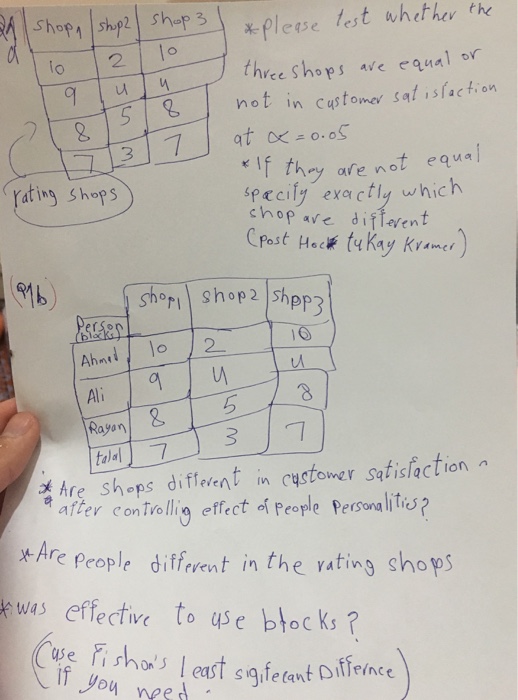 shop1 shop2 shop3
10 2 10
9 4 4
8 5 8
7 3 7
rating shops
*please test whether the
three shops are equal or
not in customer satisfaction
at α = 0.05
* If they are not equal
specify exactly which
shop are different
(post Hock tukay Kramer)
Q1b)
Person (blocks) shop1 shop2 shpp3
Ahmed 10 2 10
Ali 9 4 4
Rayan 8 5 8
talal 7 3 7
* Are shops different in customer satisfaction
* after controllig effect of people personalities?
* Are people different in the rating shops
* was effective to use blocks?
(use Fishon's least sigifecant Differnce)
if you need.